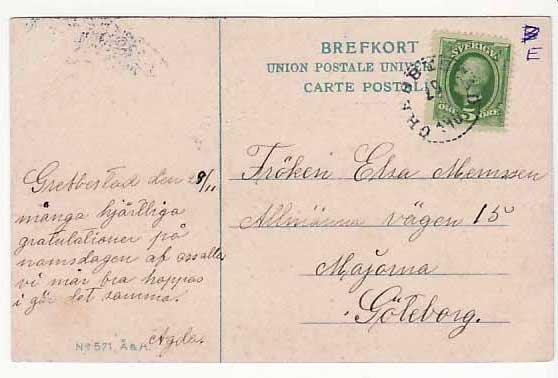 BREFKORT
UNION POSTALE UNIV
CARTE POSTAL
SVERIGE
5 ÖRE
E
Grebbestad den 28/11
många hjärtliga
gratulationer på
namsdagen af oss alla
vi mår bra hoppas
i gör det samma.
Agda.
Fröken Elsa Memssen
Allmänna vägen 15
Majorna
Göteborg.
No 571, Å & H.